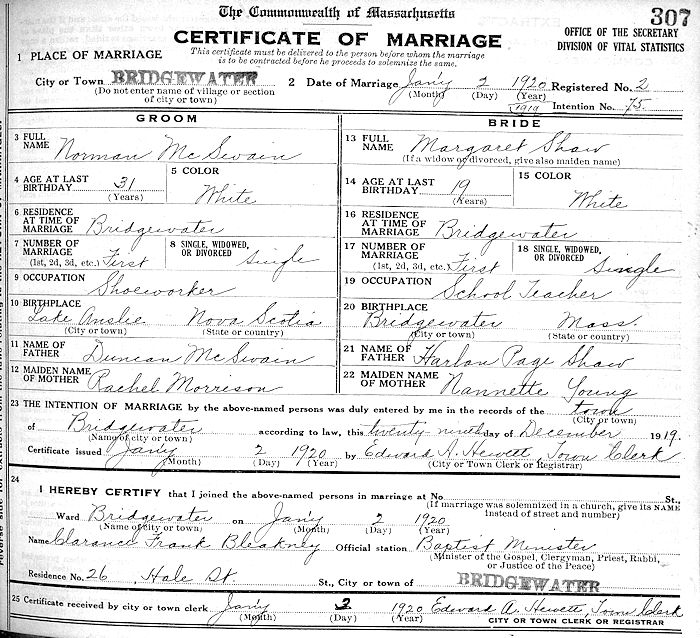 The Commonwealth of Massachusetts
307
CERTIFICATE OF MARRIAGE
OFFICE OF THE SECRETARY
DIVISION OF VITAL STATISTICS
This certificate must be delivered to the person before whom the marriage
is to be contracted before he proceeds to solemnize the same.
1 PLACE OF MARRIAGE
City or Town BRIDGEWATER
(Do not enter name of village or section
of city or town)
2 Date of Marriage Jan'y 2 1920
(Month) (Day) (Year)
1919
Registered No. 2
Intention No. 75.
GROOM
3 FULL NAME Norman McSwain
4 AGE AT LAST BIRTHDAY 31
(Years)
5 COLOR White
6 RESIDENCE AT TIME OF MARRIAGE Bridgewater
7 NUMBER OF MARRIAGE
(1st, 2d, 3d, etc.) First
8 SINGLE, WIDOWED, OR DIVORCED Single
9 OCCUPATION Shoeworker
10 BIRTHPLACE
Lake Anslie Nova Scotia
(City or town) (State or country)
11 NAME OF FATHER Duncan McSwain
12 MAIDEN NAME OF MOTHER Rachel Morrison
BRIDE
13 FULL NAME Margaret Shaw
(If a widow or divorced, give also maiden name)
14 AGE AT LAST BIRTHDAY 19
(Years)
15 COLOR White
16 RESIDENCE AT TIME OF MARRIAGE Bridgewater
17 NUMBER OF MARRIAGE
(1st, 2d, 3d, etc.) First
18 SINGLE, WIDOWED, OR DIVORCED Single
19 OCCUPATION School Teacher
20 BIRTHPLACE
Bridgewater Mass.
(City or town) (State or country)
21 NAME OF FATHER Harlan Page Shaw
22 MAIDEN NAME OF MOTHER Nannette Young
23 THE INTENTION OF MARRIAGE by the above-named persons was duly entered by me in the records of the town
(City or town)
of Bridgewater according to law, this twenty ninth day of December 1919.
(Name of city or town)
Certificate issued Jan'y 2 1920 by Edward A. Hewett, Town Clerk
(Month) (Day) (Year) (City or Town Clerk or Registrar)
24
I HEREBY CERTIFY that I joined the above-named persons in marriage at No. St.,
(If marriage was solemnized in a church, give its NAME
instead of street and number)
Ward Bridgewater on Jan'y 2 1920
(Name of city or town) (Month) (Day) (Year)
Name Clarance Frank Bleakney Official station Baptist Minister
(Minister of the Gospel, Clergyman, Priest, Rabbi,
or Justice of the Peace)
Residence No. 26 Hale St. St., City or town of BRIDGEWATER
25 Certificate received by city or town clerk Jan'y 2 1920 Edward A. Hewett, Town Clerk
(Month) (Day) (Year) CITY OR TOWN CLERK OR REGISTRAR